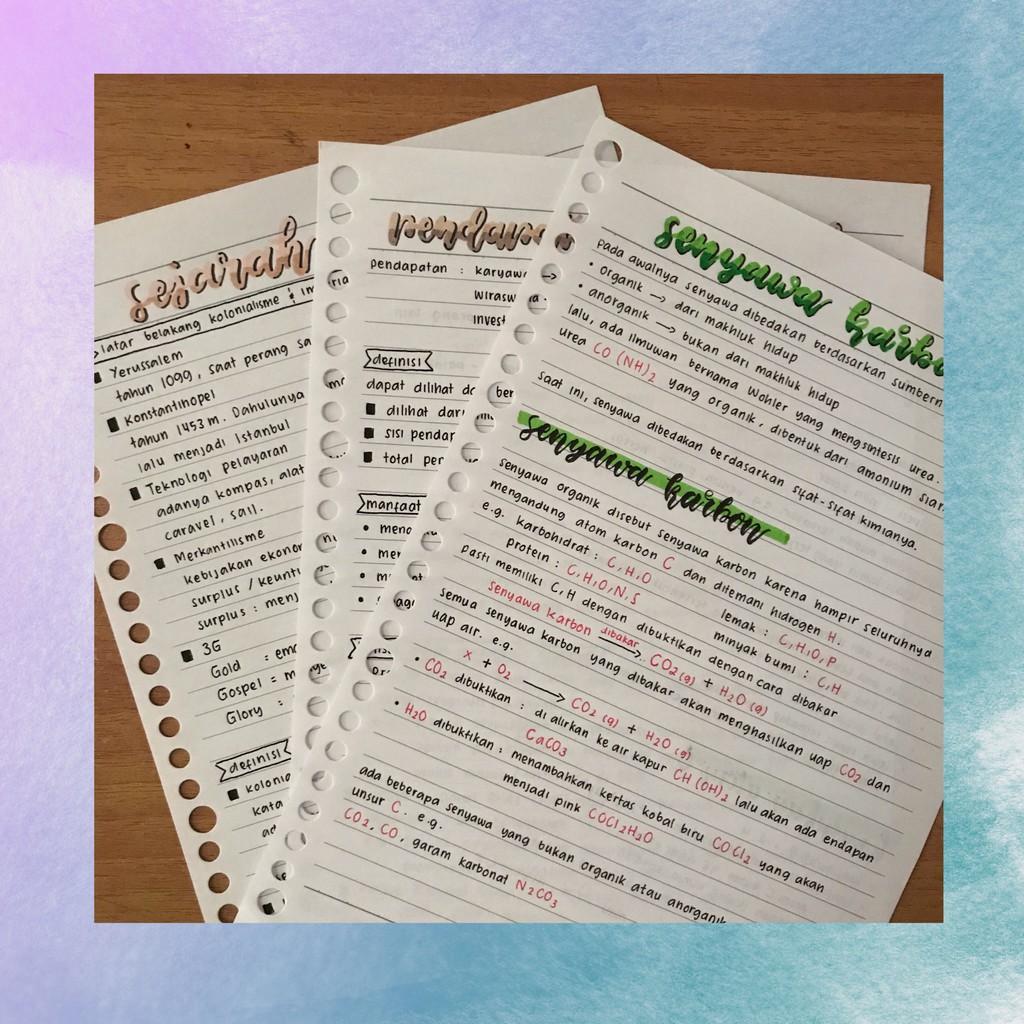 sejarah
latar belakang kolonialisme & im
Yerussalem
tahun 1099, saat perang sa
Konstantinopel
tahun 1453 m. Dahulunya
lalu menjadi Istanbul
Teknologi pelayaran
adanya kompas, alat
caravel, sail.
Merkantilisme
kebijakan ekonom
surplus / keuntu
surplus : menj
3G
Gold : ema
Gospel = m
Glory :
definisi
kolonia
kata
ad
pendapa
pendapatan : karyaw
wirasw
invest
definisi
dapat dilihat da
dilihat dari
sisi pendap
total pen
manfaat
meng
men
me
senyawa karbo
pada awalnya senyawa dibedakan berdasarkan sumbern
• organik → dari makhluk hidup
• anorganik → bukan dari makhluk hidup
lalu, ada ilmuwan bernama Wohler yang mengsintesis urea.
urea CO(NH)2 yang organik, dibentuk dari amonium sian
saat ini, senyawa dibedakan berdasarkan sifat-sifat kimianya.
senyawa karbon
senyawa organik disebut senyawa karbon karena hampir seluruhnya
mengandung atom karbon C dan ditemani hidrogen H.
e.g. karbohidrat : C,H,O lemak : C,H,O,P
protein : C,H,O,N,S minyak bumi : C,H
pasti memiliki C,H dengan dibuktikan dengan cara dibakar
senyawa karbon dibakar → CO2(g) + H2O(g)
semua senyawa karbon yang dibakar akan menghasilkan uap CO2 dan
uap air. e.g.
X + O2 → CO2(g) + H2O(g)
• CO2 dibuktikan : di alirkan ke air kapur CH(OH)2 lalu akan ada endapan
CaCO3
• H2O dibuktikan : menambahkan kertas kobal biru COCl2 yang akan
menjadi pink COCl2H2O
ada beberapa senyawa yang bukan organik atau anorganik
unsur C. e.g.
CO2, CO, garam karbonat N2CO3